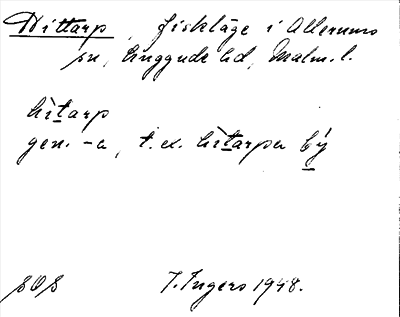 Dittarp, fiskläge i Allerums
sn, Luggude hd, Malm. l.
hìtarp
gen. -a, t. ex. hìtarpa bý
SOS
I. Ingers 1948.